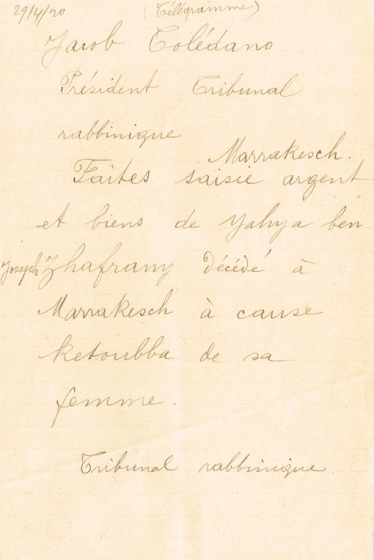 29/4/20 (Télégramme)
Jacob Tolédano
Président Tribunal
rabbinique
Marrakesch.
Faites saisie argent
et biens de Yahya ben
Joseph Zhafrany décédé à
Marrakesch à cause
ketoubba de sa
femme.
Tribunal rabbinique.